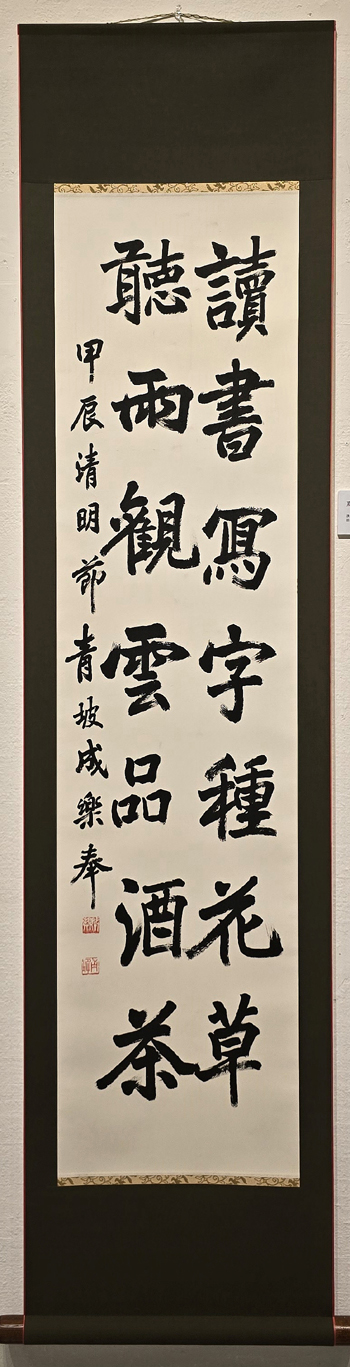 讀書寫字種花草
聽雨觀雲品酒茶
甲辰清明節青坡成樂奉